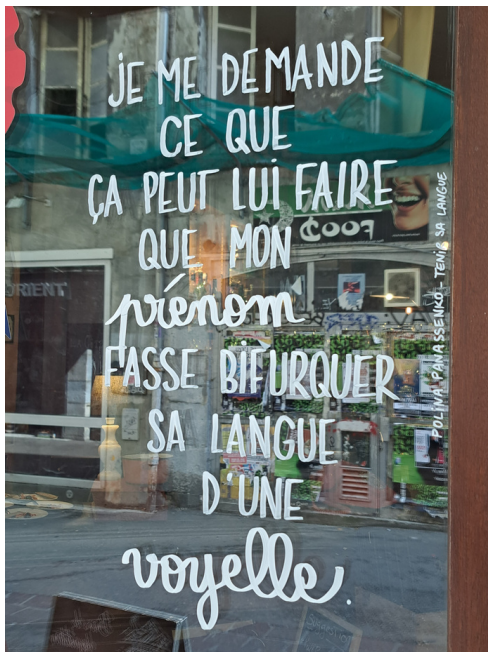 JE ME DEMANDE
CE QUE
ÇA PEUT LUI FAIRE
QUE MON
prénom
FASSE BIFURQUER
SA LANGUE
D'UNE
voyelle.
POLINA PANASSENKO - TENIR SA LANGUE
ORIENT